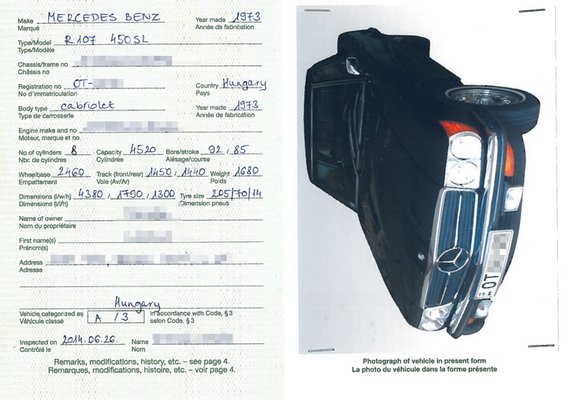 Make MERCEDES BENZ Year made 1973
Marque Année de fabrication
Type/Model R107 450SL
Type/Modèle
Chassis/frame no
Châssis no
Registration no OT- Country Hungary
No d'immatriculation Pays
Body type cabriolet Year made 1973
Type de carrosserie Année de fabrication
Engine make and no
Moteur, marque et no
No of cylinders 8 Capacity 4520 Bore/stroke 92, 85
Nbr. de cylindres Cylindrée Alésage/course
Wheelbase 2460 Track (front/rear) 1450, 1440 Weight 1680
Empattement Voie (Av/Ar) Poids
Dimensions (l/w/h) 4380, 1790, 1300 Tyre size 205/70/14
Dimensions (l/l/h) Dimension pneus
Name of owner
Nom du propriétaire
First name(s)
Prénom(s)
Address
Adresse
Hungary
Vehicle categorized as A /3 in accordance with Code, §3
Véhicule classé selon Code, §3
Inspected on 2014.06.26. Name
Contrôlé le Nom
Remarks, modifications, history, etc. – see page 4.
Remarques, modifications, histoire, etc. – voir page 4.
OT
Photograph of vehicle in present form
La photo du véhicule dans la forme présente